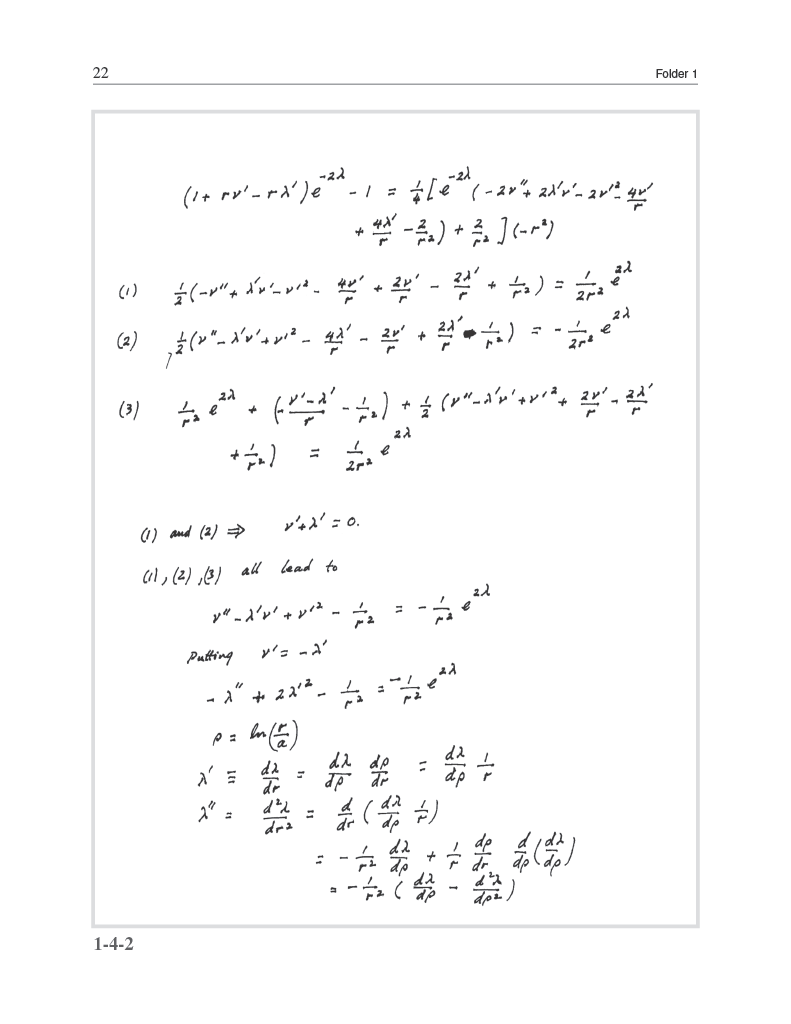 22 Folder 1
(1 + rν' − rλ')e^{-2λ} − 1 = 1/4 [e^{-2λ}(−2ν'' + 2λ'ν' − 2ν'² − 4ν'/r
+ 4λ'/r − 2/r²) + 2/r²](−r²)
(1) 1/2(−ν'' + λ'ν' − ν'² − 4ν'/r + 2ν'/r − 2λ'/r + 1/r²) = 1/2r² e^{2λ}
(2) 1/2(ν'' − λ'ν' + ν'² − 4λ'/r − 2ν'/r + 2λ'/r − 1/r²) = − 1/2r² e^{2λ}
(3) 1/r² e^{2λ} + (− ν'−λ'/r − 1/r²) + 1/2(ν'' − λ'ν' + ν'² + 2ν'/r − 2λ'/r
+ 1/r²) = 1/2r² e^{2λ}
(1) and (2) ⇒ ν' + λ' = 0.
(1), (2), (3) all lead to
ν'' − λ'ν' + ν'² − 1/r² = − 1/r² e^{2λ}
Putting ν' = −λ'
− λ'' + 2λ'² − 1/r² = − 1/r² e^{2λ}
ρ = ln(r/a)
λ' ≡ dλ/dr = dλ/dρ dρ/dr = dλ/dρ 1/r
λ'' = d²λ/dr² = d/dr (dλ/dρ 1/r)
= − 1/r² dλ/dρ + 1/r dρ/dr d/dρ(dλ/dρ)
= − 1/r² (dλ/dρ − d²λ/dρ²)
1-4-2